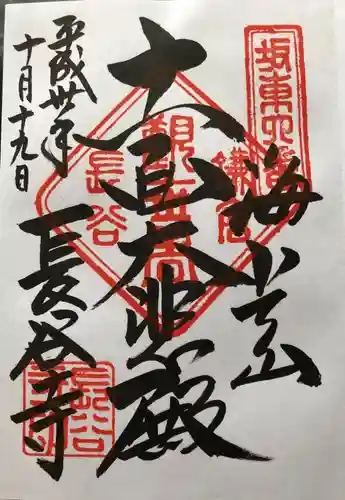 坂東四番
海光山
鎌倉
観世音
長谷
十一面大悲殿
平成卅年
十月十九日
長谷寺
長谷寺印